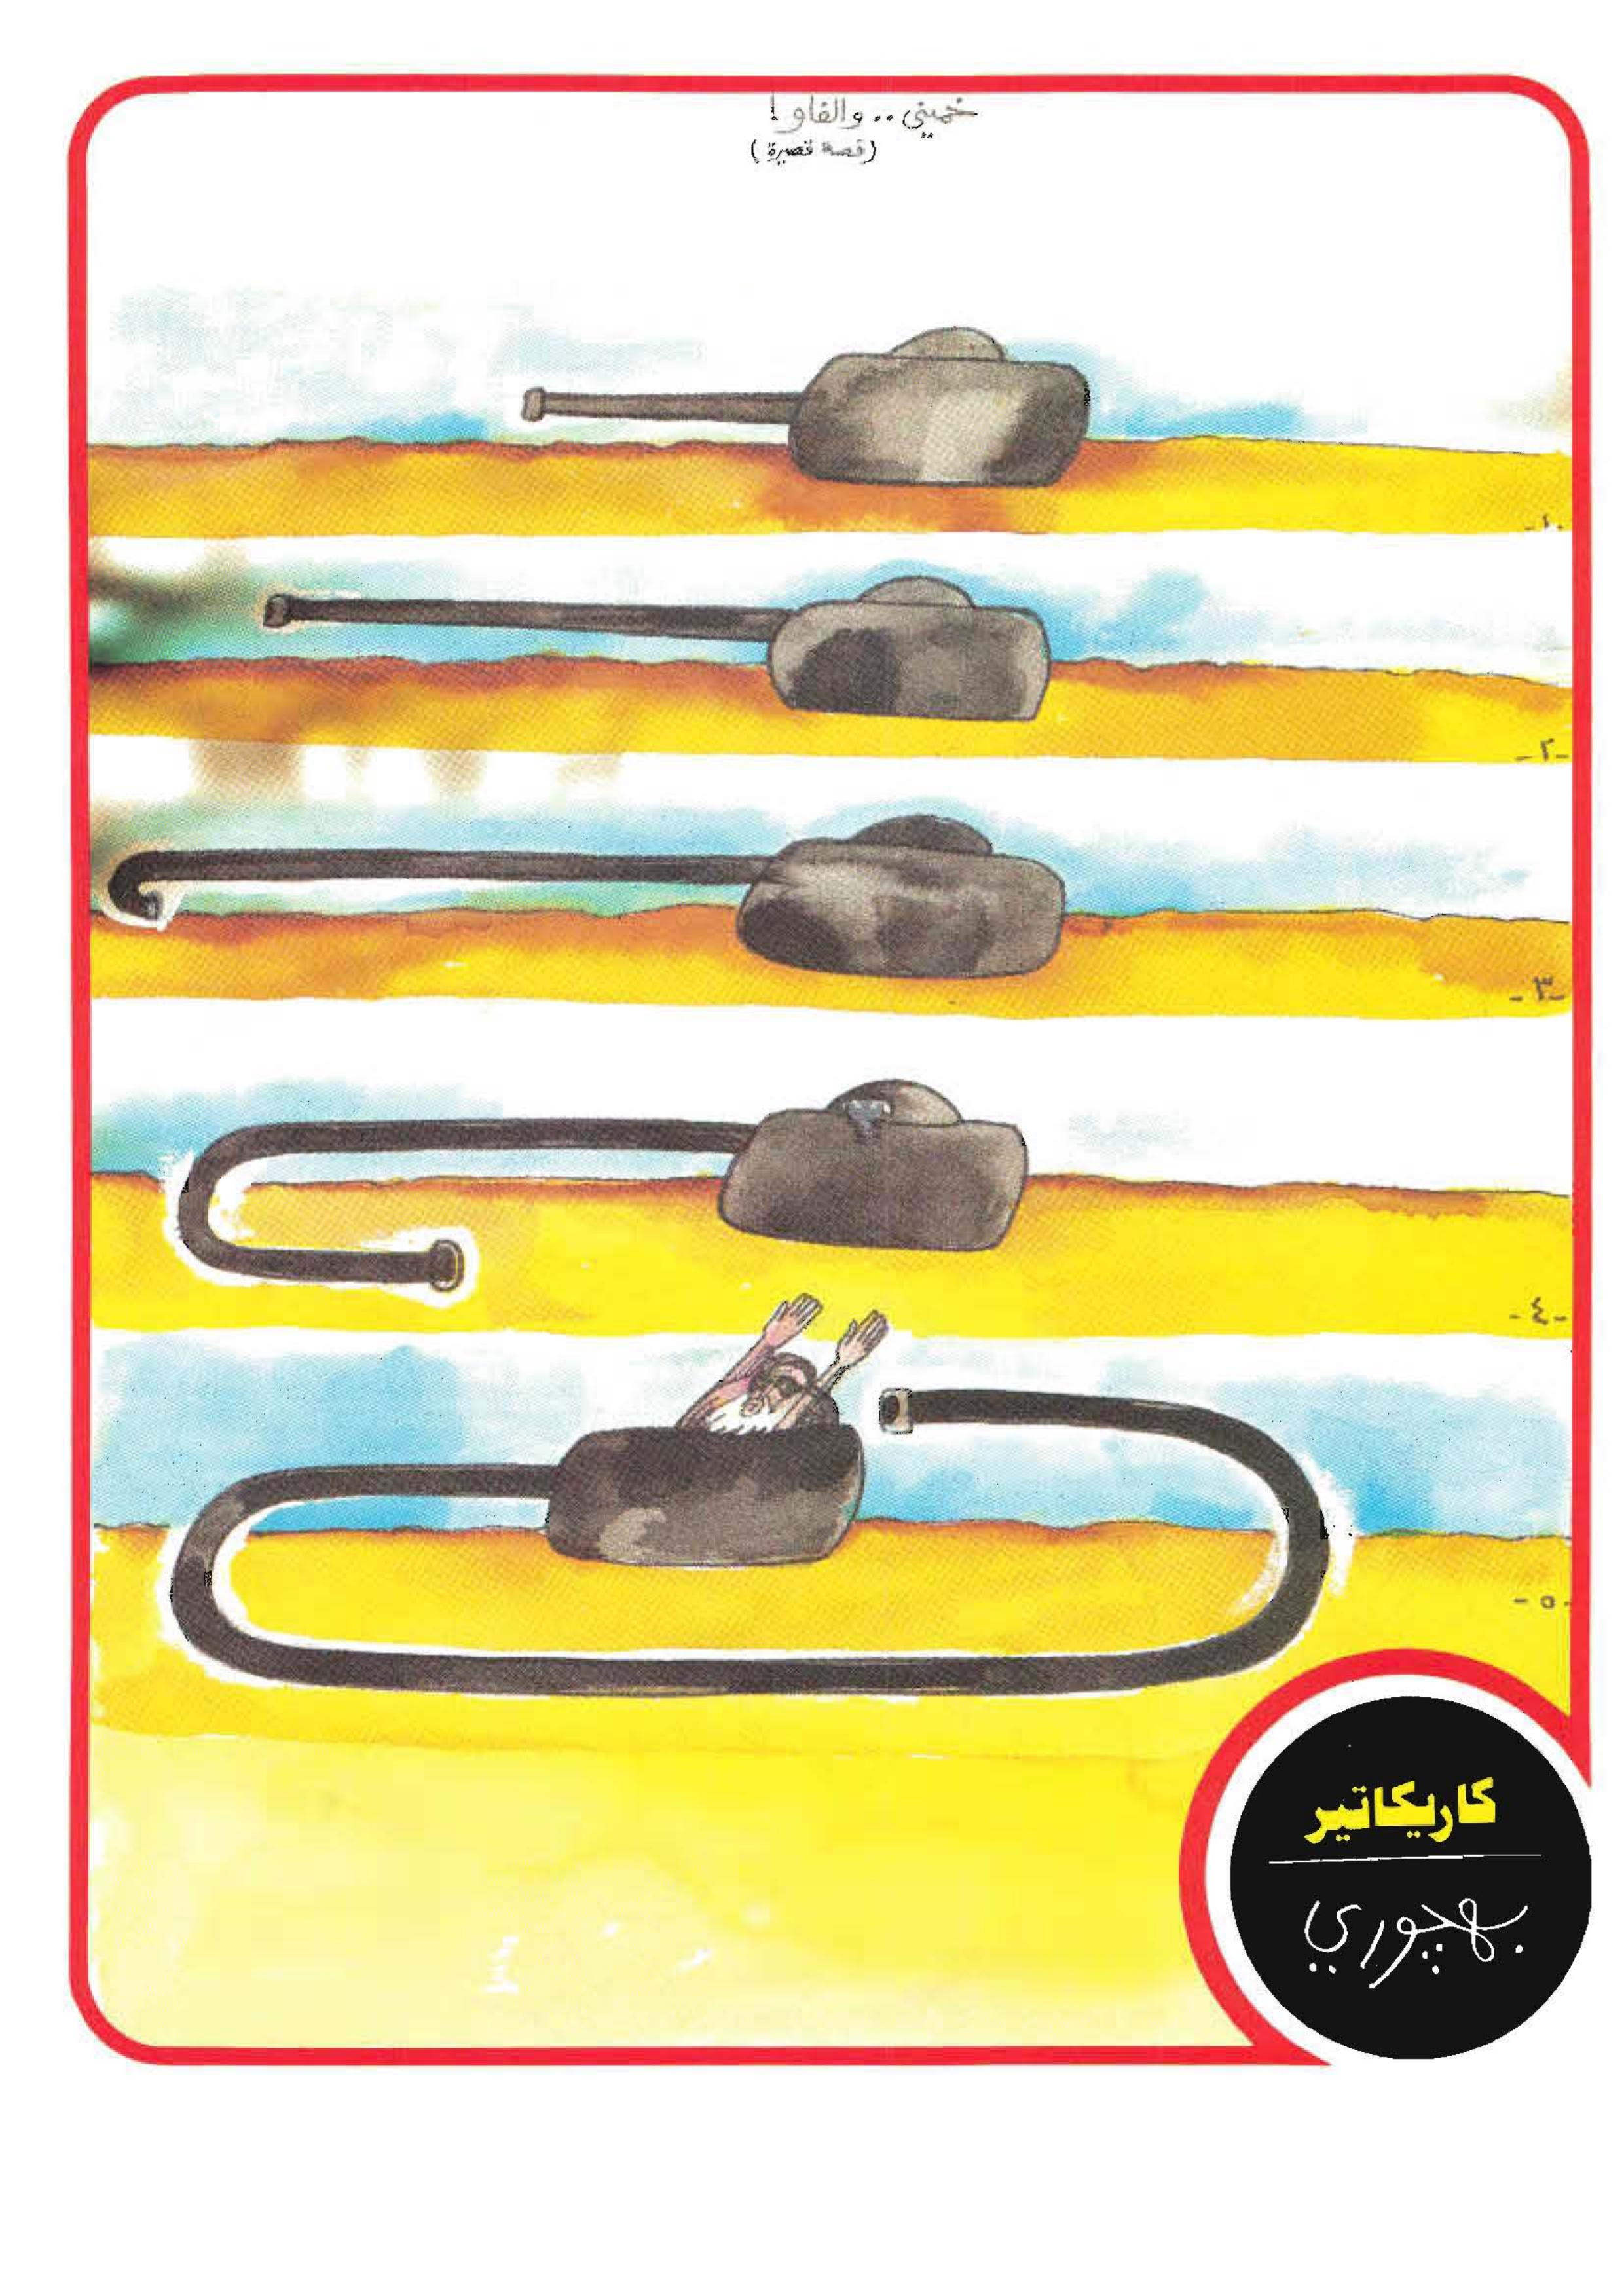 خميني .. والفاو !
(قصة قصيرة)
-١-
-٢-
-٣-
-٤-
-٥-
كاريكاتير
بهجوري